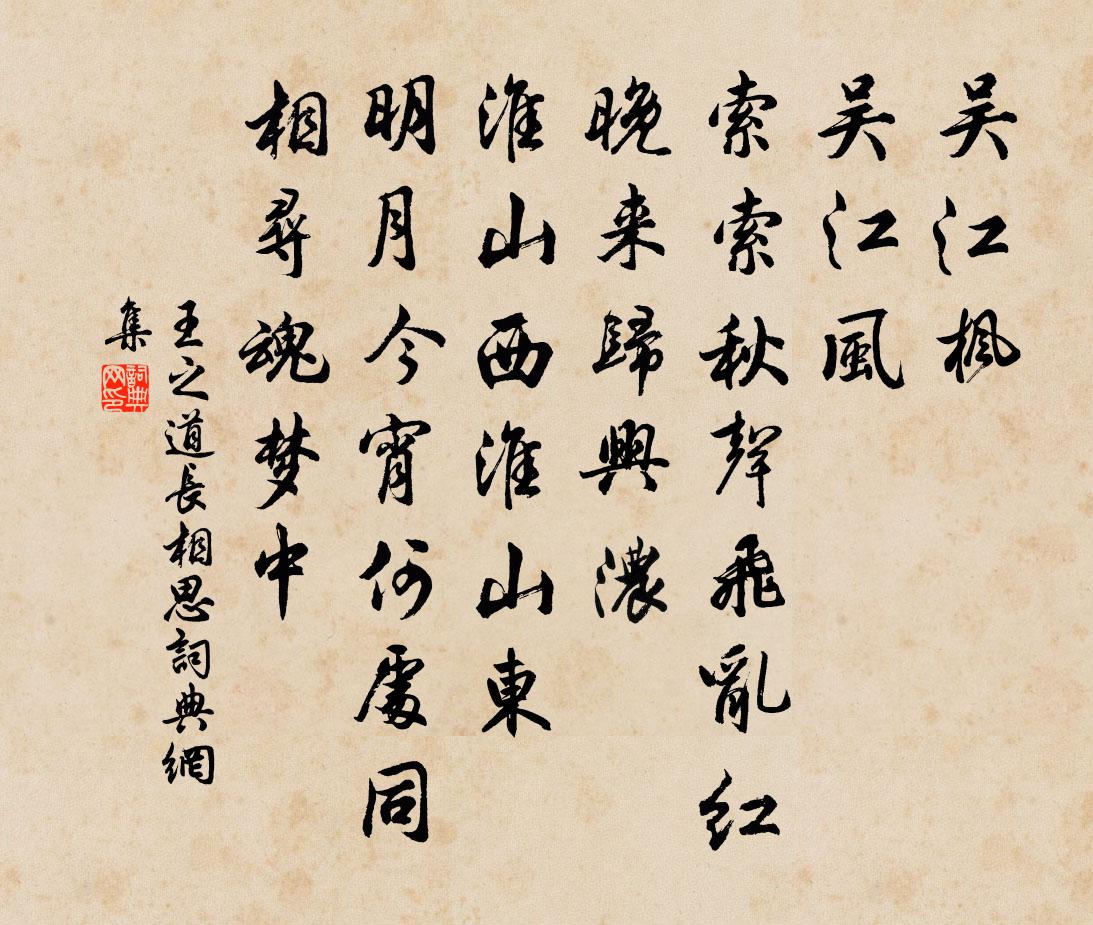 吴江楓
吴江風
索索秋聲飛亂红
晚来歸興濃
淮山西淮山東
明月今宵何處同
相尋魂梦中
王之道長相思詞典網
集
詞典
网印